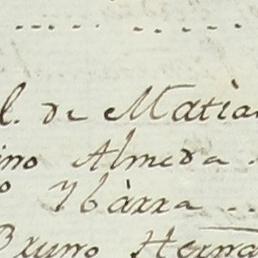 l. de Matia
ino Almeda
o Ybàrra
Bruno Herna